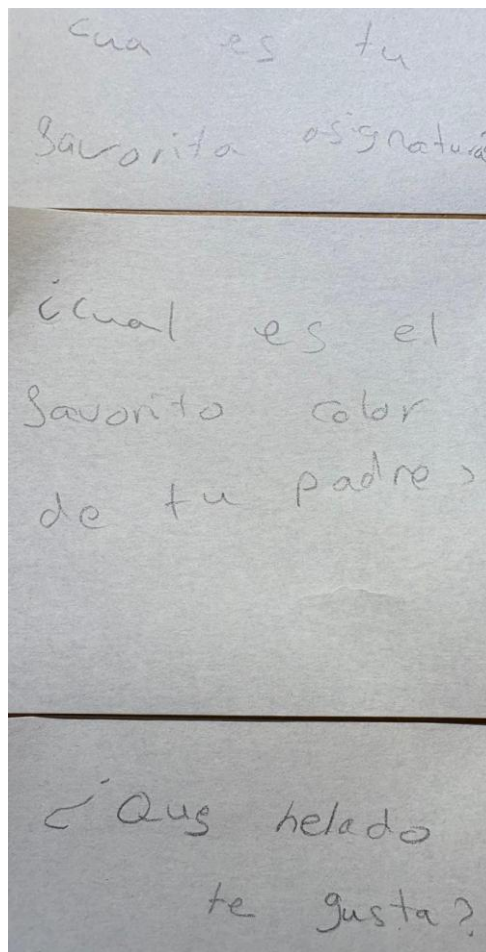 cua es tu
favorita asignatura
¿cual es el
favorito color
de tu padre?
¿Que helado
te gusta?